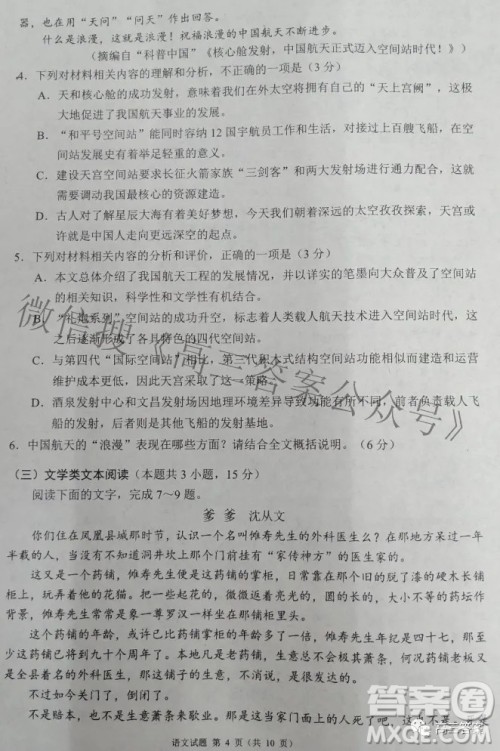 器，也在用“天问”“问天”作出回答。
什么是浪漫，这就是浪漫！祝福浪漫的中国航天不断进步。
（摘编自“科普中国”《核心舱发射，中国航天正式迈入空间站时代！》）
4．下列对材料相关内容的理解和分析，不正确的一项是（3 分）
A．天和核心舱的成功升空，意味着我们在外太空将拥有自己的“天上宫阙”，这极
大地促进了我国航天事业的发展。
B．“和平号空间站”能同时容纳 12 国宇航员工作和生活，对接过上百艘飞船，在空
间站发展史有着举足轻重的意义。
C．建设天宫空间站要求长征火箭家族“三剑客”和两大发射场进行通力配合，这就
需要调动我国最核心的资源建造。
D．古人对了解星辰大海有着美好的愿望，今人朝着深远的太空孜孜探索，天宫或
许就是中国人走向更深远太空的起点。
5．下列对材料相关内容的分析和评价，正确的一项是（3 分）
A．本文总体介绍了我国航天工程的发展情况，并以诗意的笔墨向大众普及了空间站
的相关知识，科学性和文学性有机结合。
B．“礼炮系列”的成功升空，标志着人类载人航天技术进入空间站时代，这
之后逐渐形成了具有各自特色的四代空间站。
C．与第四代“国际空间站”相比，第三代积木式结构空间站功能相似而建造和运营
维护成本更低，我国空间站建造采取了这一策略。
D．酒泉发射中心和文昌发射场内部功能不同，互不影响，前者负责载人飞
船的发射，后者负责其他飞船的发射基地。
6．中国航天的“浪漫”表现在哪些方面？请结合全文概括说明。（6 分）
（三）文学类文本阅读（本题共 3 小题，15 分）
阅读下面的文字，完成 7～9 题。
爹 爹 沈从文
你们住在凤凰县城那时节，认识一个名叫傩寿先生的外科医生么？在那地方有一年
半载的人，当不至于不知道洞井坎上那个门前有“家传神方”的医生家的。
这又是一个药铺，傩寿先生便是这药铺的掌柜，日常总是坐在那个旧的脱了漆的硬木长铺
柜旁，用手抚摩着他的花猫。把人介绍拢去，傩寿先生是象一尊罗汉一样样子坐在那个铺柜里。
这个药铺的年龄，许有九十多年吧，但这掌柜的，傩寿先生年纪是四十七，那至少
便是已经第二代了。本地凡是老药铺，生意总不会萧条，因为傩寿先生的和气，又是
全县最著名的外科医生，那这铺子的生意，是特别好了。
不过如今却关了门，仿佛生意极其萧条。
不是赔本，也不是傩寿先生死。那是这当家门面上的人，已无
语文试题 第 4 页（共 10 页）
微信搜《高三答案公众号》
答案圈